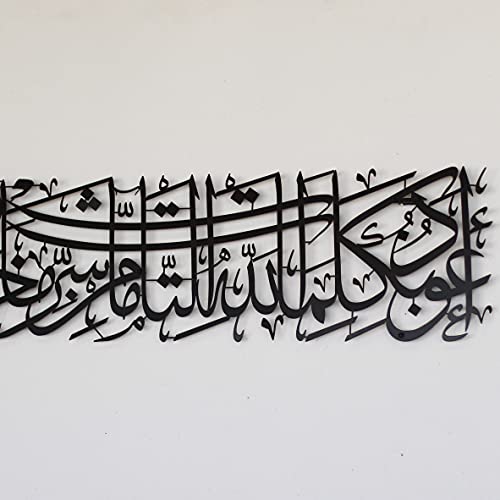 أعوذ بكلمات الله التامات من شر ما خلق